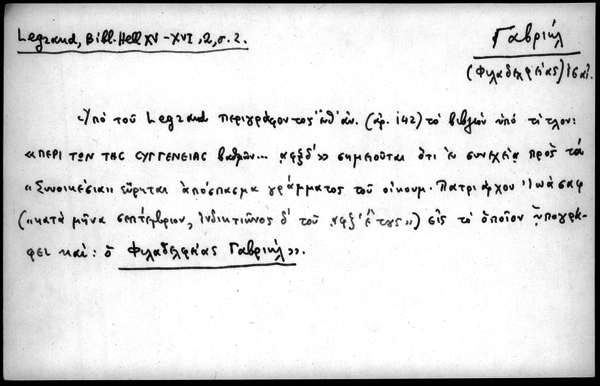 Legrand, Bibl. Hell XV-XVI, 2, σ. 2.
Γαβριήλ
(Φιλαδελφείας)
Ὑπὸ τοῦ Legrand περιγράφοντος (ἀρ. 142) τὸ βιβλίον ὑπὸ τίτλον:
«ΠΕΡΙ ΤΩΝ ΤΗC CΥΓΓΕΝΕΙΑC βαθμῶν... ͵αφξδ'» σημειοῦται ὅτι ἐν συνεχείᾳ πρὸς τὰ
«Συνοικέσια» εὕρηται ἀπόσπασμα γράμματος τοῦ οἰκουμ. Πατριάρχου Ἰωάσαφ
(«κατὰ μῆνα σεπτέμβριον, ἰνδικτιῶνος δ' τοῦ ͵αφξ' ἔτους») εἰς τὸ ὁποῖον ὑπογρά-
φει καὶ: ὁ Φιλαδελφείας Γαβριήλ».